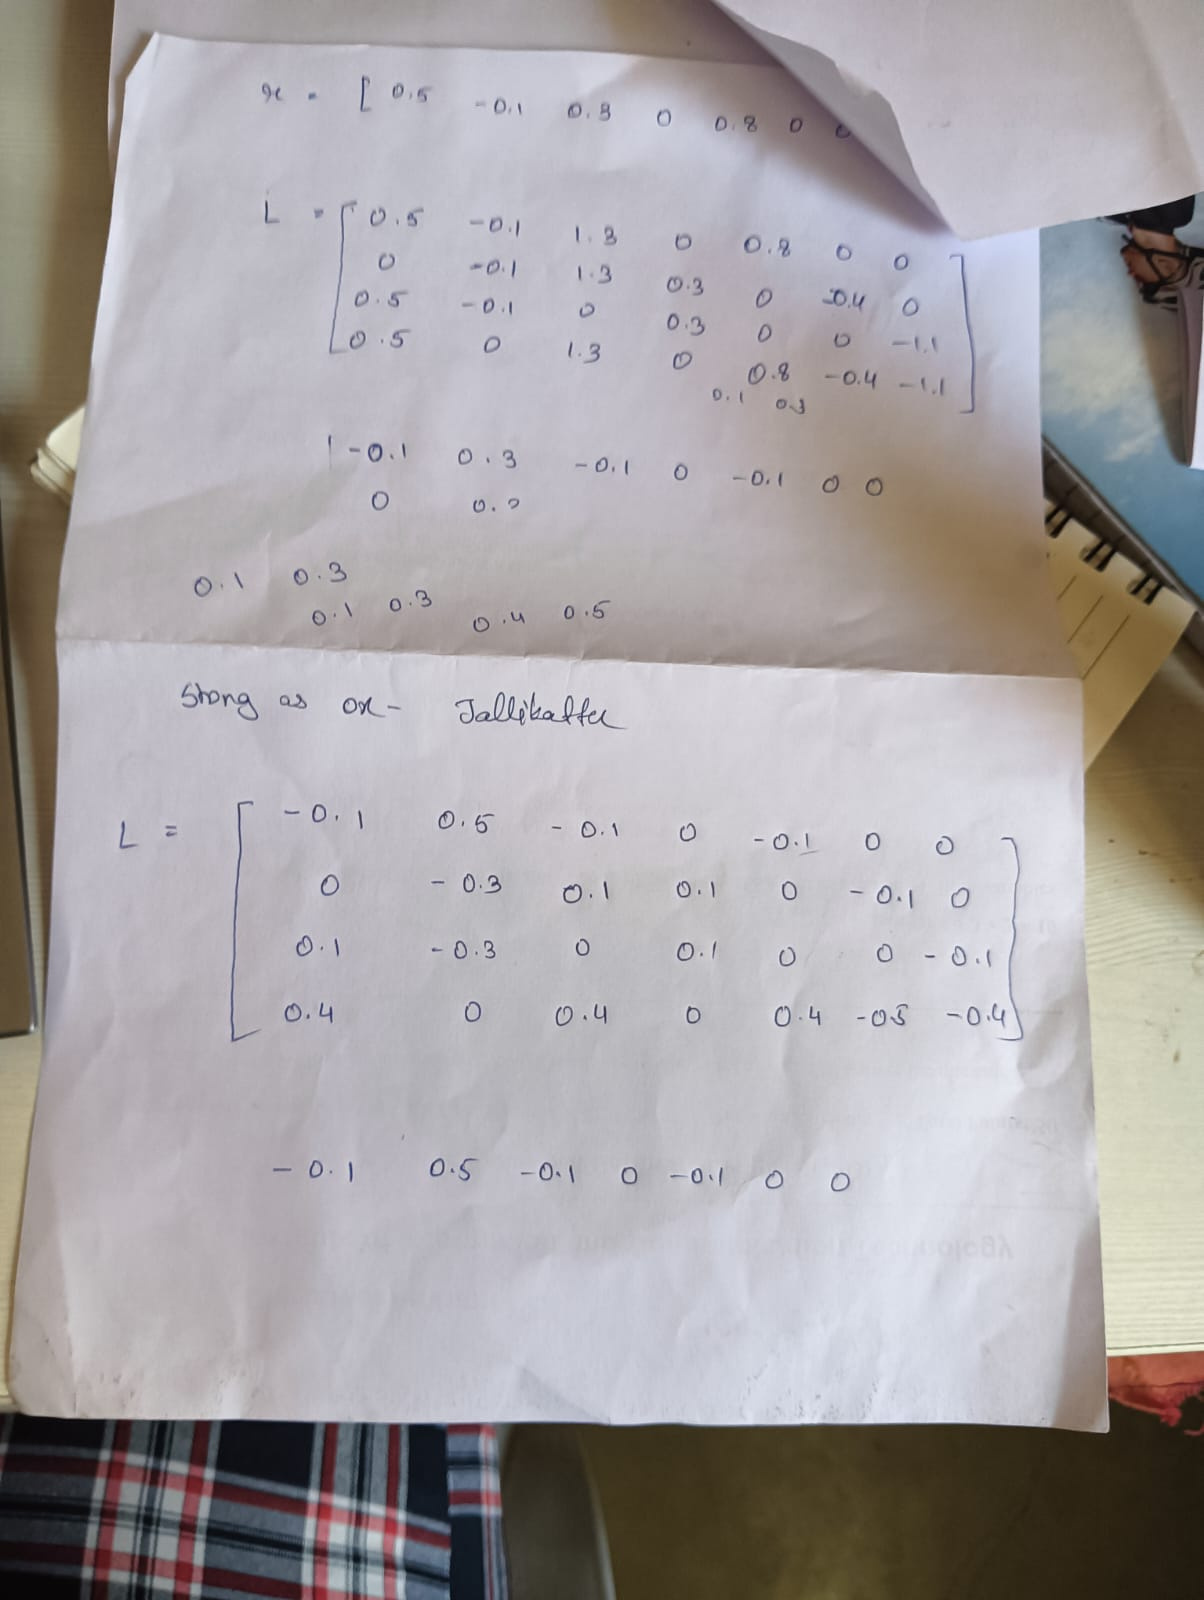 x = [ 0.5 -0.1 0.3 0 0.8 0 0
L = [ 0.5 -0.1 1.3 0 0.8 0 0
0 -0.1 1.3 0.3 0 -0.4 0
0.5 -0.1 0 0.3 0 0 -1.1
0.5 0 1.3 0 0.8 -0.4 -1.1 ]
0.1 0.3
-0.1 0.3 -0.1 0 -0.1 0 0
0
0.1 0.3
0.1 0.3 0.4 0.5
Strong as ox - Jallikattu
L = [ -0.1 0.5 -0.1 0 -0.1 0 0
0 -0.3 0.1 0.1 0 -0.1 0
0.1 -0.3 0 0.1 0 0 -0.1
0.4 0 0.4 0 0.4 -0.5 -0.4 ]
-0.1 0.5 -0.1 0 -0.1 0 0